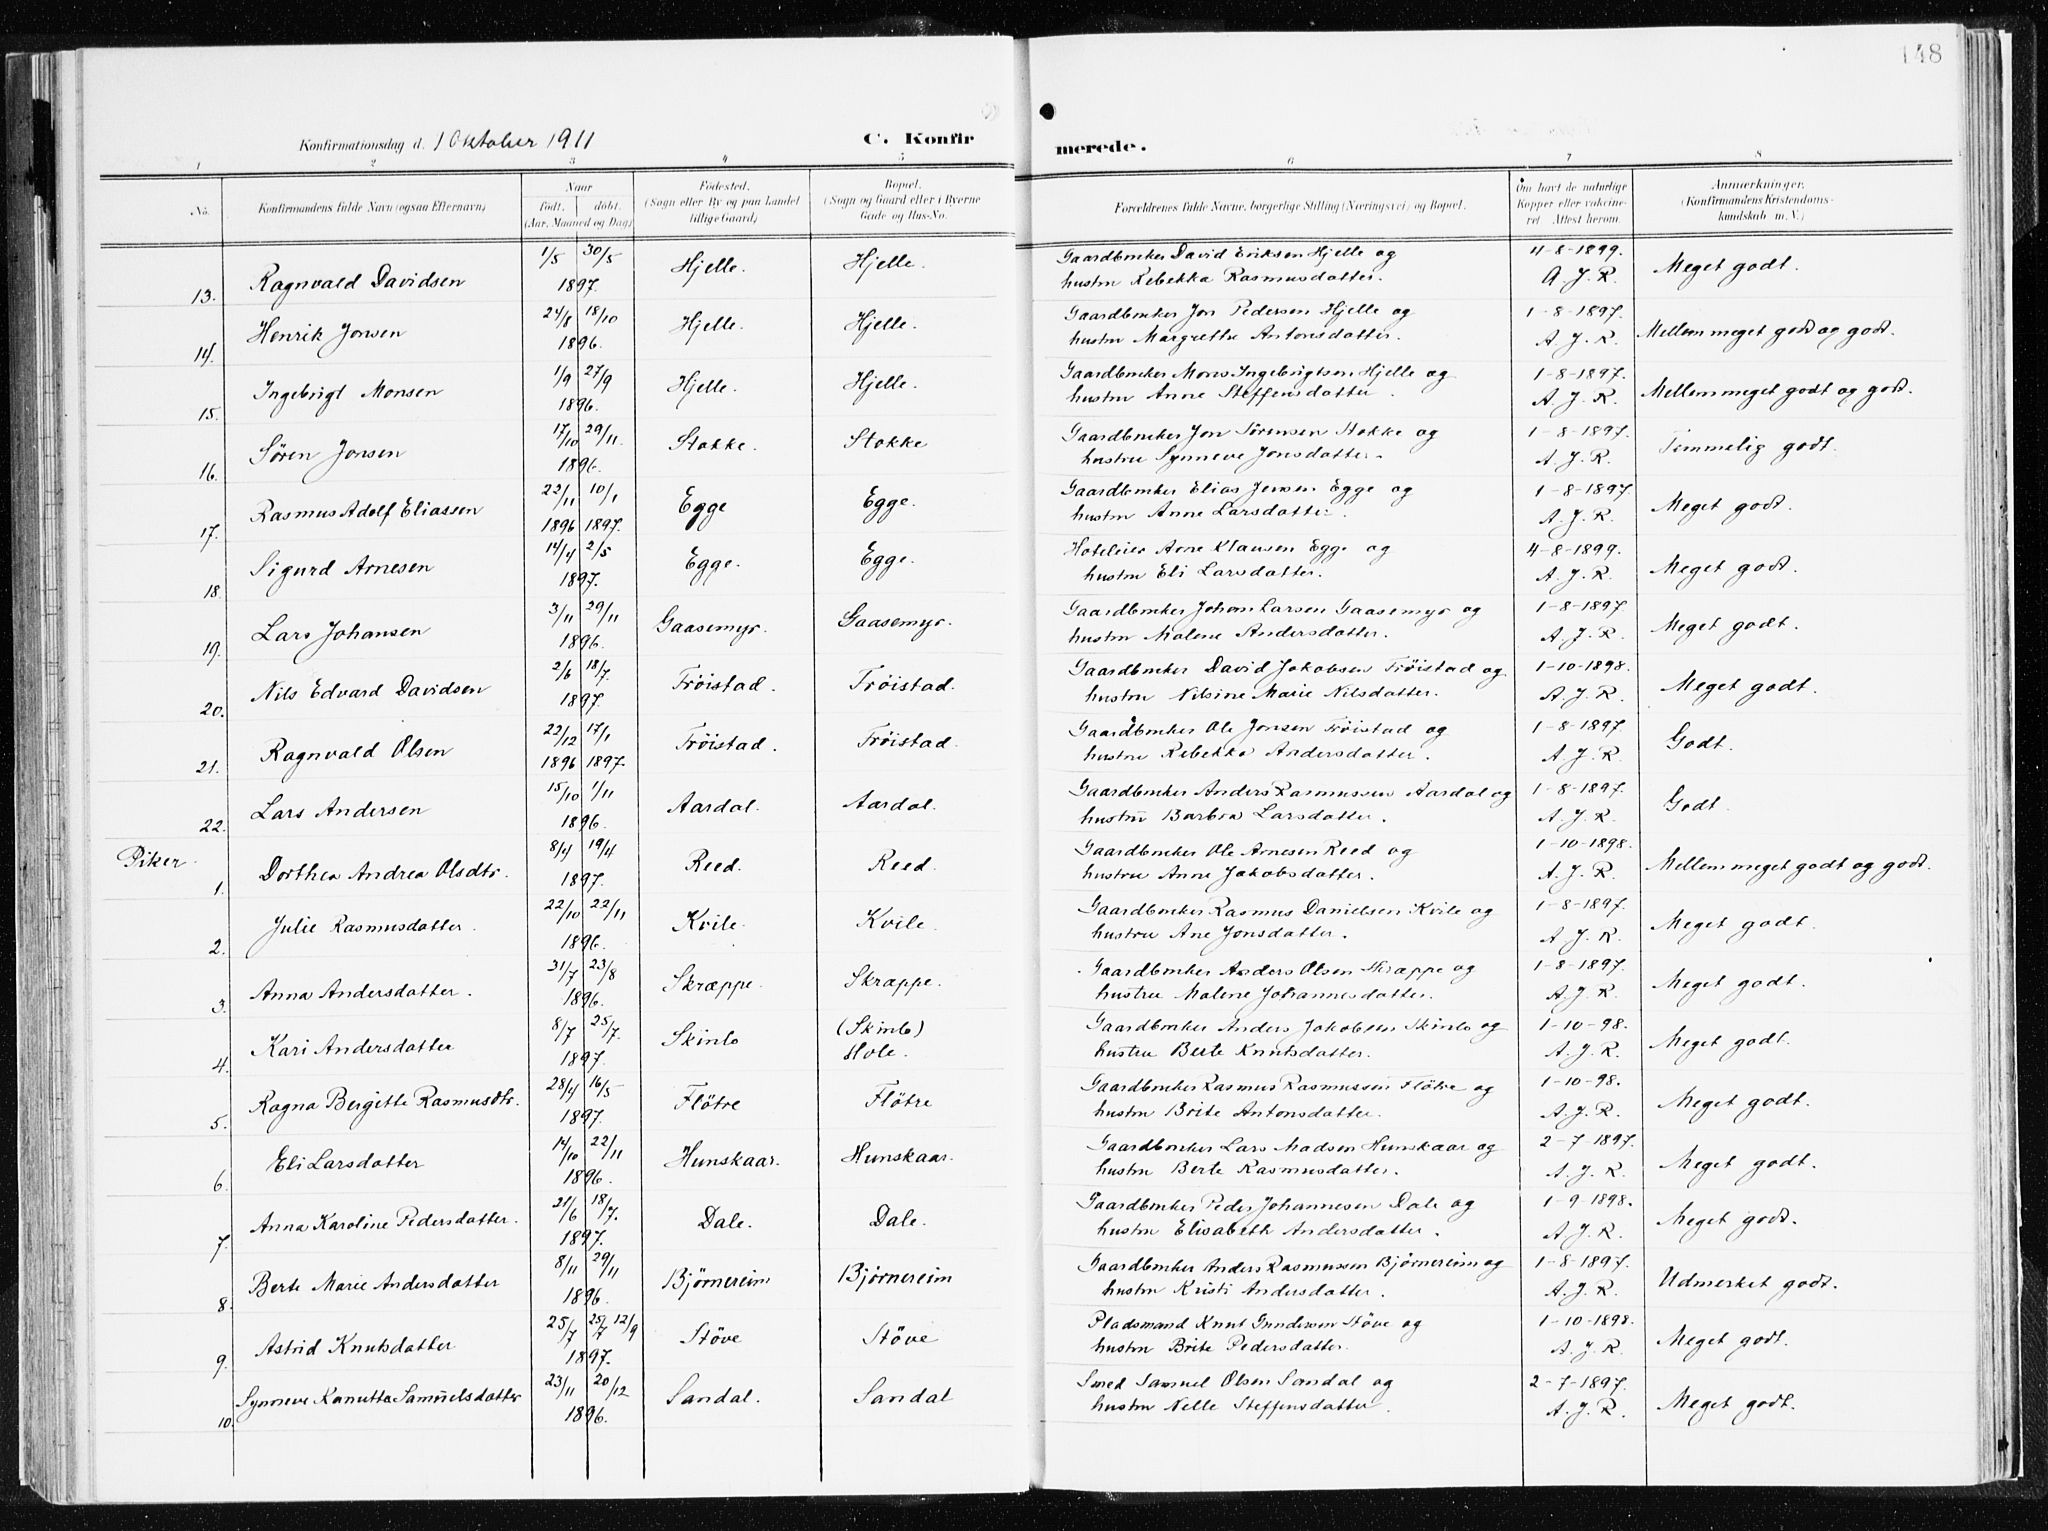 148
Konfirmationsdag d. 1 Oktober 1911 C. Konfirmerede.
1 2 3 4 5 6 7 8
No. Konfirmandens fulde Navn (ogsaa Efternavn) Naar født, døbt. (Aar, Maaned og Dag) Fødested. (Sogn eller By og paa Landet tillige Gaard) Bopæl. (Sogn og Gaard eller i Byerne Gade og Hus-No. Forældrenes fulde Navne, borgerlige Stilling (Næringsvei) og Bopæl. Om havt de naturlige Kopper eller vaccineret. Attest herom. Anmærkninger. (Konfirmandens Kristendomskundskab m. V.)
13. Ragnvald Davidsen 1/5 30/5 1897. Hjelle. Hjelle. Gaardbruker David Eriksen Hjelle og 11-8-1899. Meget godt.
hustru Rebekka Rasmusdatter. A. J. R.
14. Henrik Jonsen 24/8 18/10 1896. Hjelle. Hjelle. Gaardbruker Jon Pedersen Hjelle og 1-8-1897. Mellem meget godt og godt.
hustru Margrethe Antonsdatter. A. J. R.
15. Ingebrigt Monsen 1/9 27/9 1896. Hjelle. Hjelle. Gaardbruker Mons Ingebrigtsen Hjelle og 1-8-1897. Mellem meget godt og godt.
hustru Anne Steffensdatter. A. J. R.
16. Sören Jonsen 17/10 29/11. 1896. Stokke. Stokke Gaardbruker Jon Sörensen Stokke og 1-8-1897. Temmelig godt.
hustru Synneve Jonsdatter. A. J. R.
17. Rasmus Adolf Eliassen 22/11 10/1 1896 1897. Egge Egge. Gaardbruker Elias Jensen Egge og 1-8-1897. Meget godt.
hustru Anne Larsdatter. A. J. R.
18. Sigurd Arnesen 14/4 2/5 1897. Egge. Egge. Hoteleier Arne Klausen Egge og 4-8-1899. Meget godt.
hustru Eli Larsdatter. A. J. R.
19. Lars Johansen 3/11 29/11 1896. Gaasemyr. Gaasemyr. Gaardbruker Johan Larsen Gaasemyr og 1-8-1897. Meget godt.
hustru Malene Andersdatter. A. J. R.
20. Nils Edvard Davidsen 2/6 18/7. 1897. Trøistad. Trøistad. Gaardbruker David Jakobsen Trøistad og 1-10-1898. Meget godt.
hustru Nilsine Marie Nilsdatter. A. J. R.
21. Ragnvald Olsen 22/12 17/1 1896 1897. Trøistad. Trøistad. Gaardbruker Ole Jonsen Trøistad og 1-8-1897. Godt.
hustru Rebekka Andersdatter. A. J. R.
22. Lars Andersen 15/10 1/11 1896. Aardal. Aardal. Gaardbruker Anders Rasmussen Aardal og 1-8-1897. Godt.
hustru Barbra Larsdatter. A. J. R.
Piker.
1. Dorthea Andrea Olsdtr. 8/4 19/4 1897. Reed. Reed. Gaardbruker Ole Arnesen Reed og 1-10-1898. Mellem meget godt og godt.
hustru Anne Jakobsdatter. A. J. R.
2. Julie Rasmusdatter. 22/10 22/11 1896. Kvile. Kvile. Gaardbruker Rasmus Danielsen Kvile og 1-8-1897. Meget godt.
hustru Ane Jonsdatter. A. J. R.
3. Anna Andersdatter. 31/7 23/8 1896. Skræppe. Skræppe. Gaardbruker Anders Olsen Skræppe og 1-8-1897. Meget godt.
hustru Malene Johannesdatter. A. J. R.
4. Kari Andersdatter 8/7 25/7. 1897. Skinlo (Skinlo) Hole. Gaardbruker Anders Jakobsen Skinlo og 1-10-98. Meget godt.
hustru Berte Knutsdatter. A. J. R.
5. Ragna Bergitte Rasmusdtr. 28/4 16/5 1897. Flötre Flötre Gaardbruker Rasmus Rasmussen Flötre og 1-10-98. Meget godt.
hustru Brite Antonsdatter. A. J. R.
6. Eli Larsdatter 14/10 22/11 1896. Hunskaar. Hunskaar. Gaardbruker Lars Madsen Hunskaar og 2-7-1897. Meget godt.
hustru Berte Rasmusdatter. A. J. R.
7. Anna Karoline Pedersdatter. 21/6 18/7. 1897. Dale. Dale. Gaardbruker Peder Johannesen Dale og 1-9-1898. Meget godt.
hustru Elisabeth Andersdatter. A. J. R.
8. Berte Marie Andersdatter 8/11 29/11 1896. Bjørnereim Bjørnereim Gaardbruker Anders Rasmussen Bjørnereim og 1-8-1897. Udmerket godt.
hustru Kristi Andersdatter. A. J. R.
9. Astrid Knutsdatter 25/7 25/7 12/9 1897. Stöve Stöve Pladsmand Knut Gundersen Stöve og 1-10-1898. Meget godt.
hustru Brite Pedersdatter. A. J. R.
10. Synneve Kanutta Samuelsdatter 23/11 20/12 1896. Sandal. Sandal Smed Samuel Olsen Sandal og 2-7-1897. Meget godt.
hustru Nelle Steffensdatter. A. J. R.